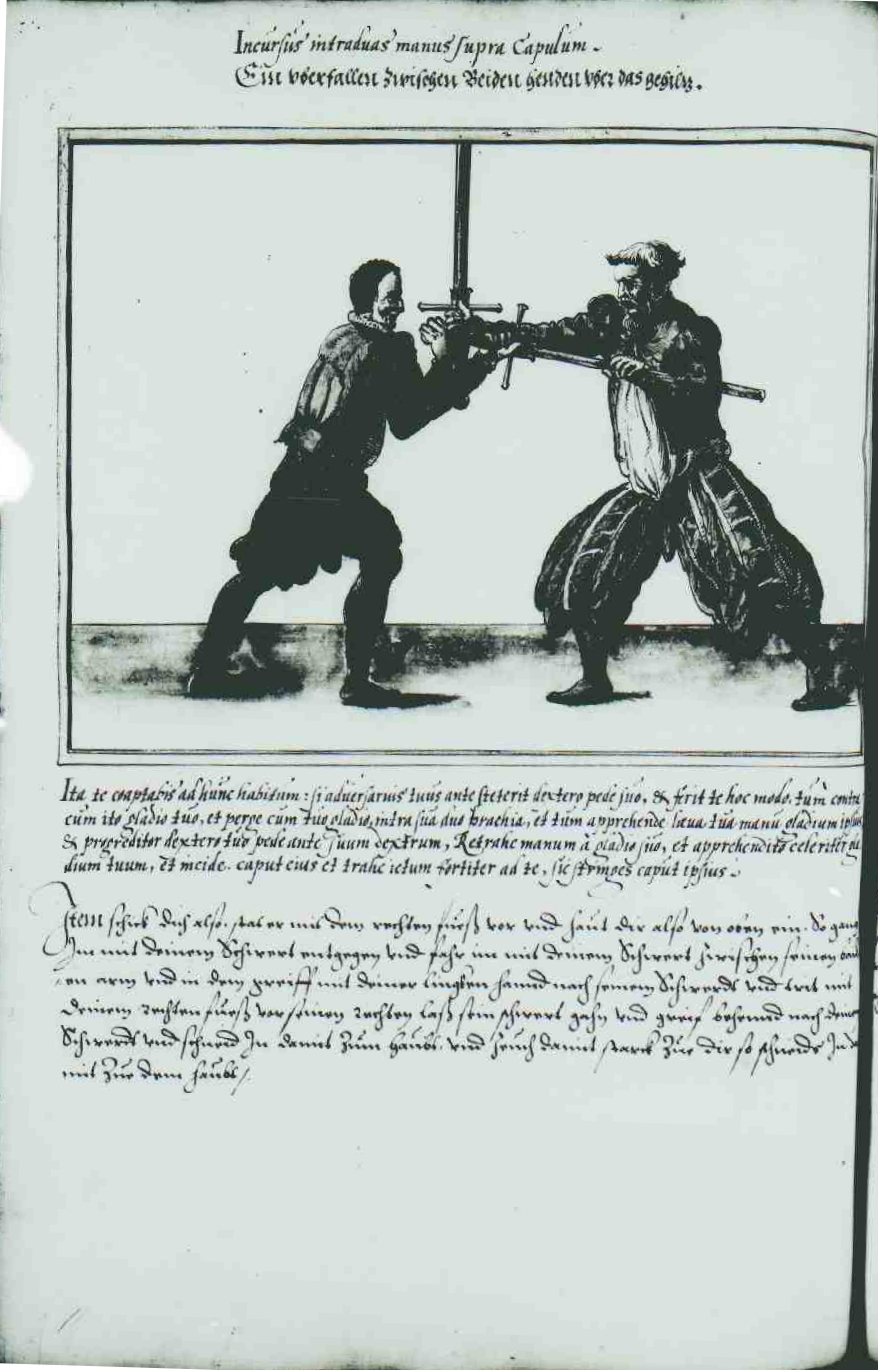 Incursus intraduas manus supra Capulum.
Ein vberfallen zwischen Beiden henden vber das gehiltz.
Ita te coaptabis ad hunc habitum: si adversarius tuus ante steterit dextero pede suo, & ferit te hoc modo, tum contra
eum ito gladio tuo, et perge cum tuo gladio, intra sua duo brachia, et tum apprehende laeva tua manu gladium ipsius
& progreditor dextero tuo pede ante suum dextrum, Retrahe manum à gladio suo, et apprehendito celeriter gla
dium tuum, et incide caput eius et trahe ictum fortiter ad te, sic stringes caput ipsius.
Item schick dich also, stat er mit dem rechten fuesß vor vnd haut dir also von oben ein. So gang
Im mit deinem Schwert entgegen vnd fahr im mit deinem Schwert zwischen seinen
en arm vnd in dem greiff mit deiner lingken hannd nach seinem Schwerdt vnd trit mit
deinem rechten fuesß vor seinen rechten lasß sein schwert gahn vnd greif behennd nach deinem
Schwerdt vnd schneid In damit zum haubt. vnd zeuch damit starck zue dir so schneidt In
mit zue dem haubt